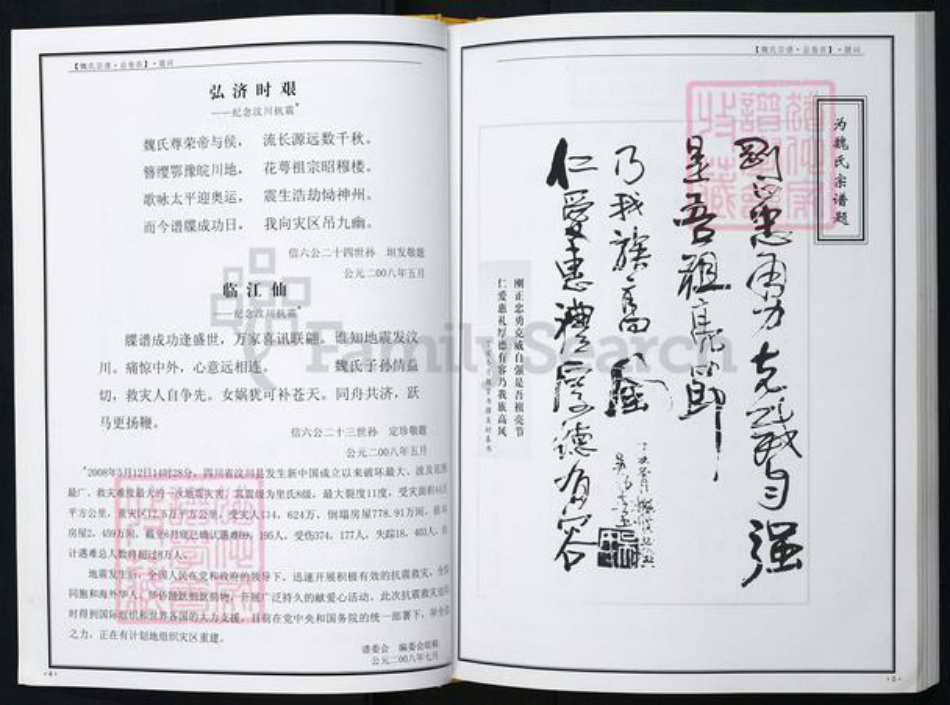 【魏氏宗谱·总卷首】·题词
弘济时艰
——纪念汶川抗震*
魏氏尊荣帝与侯， 流长源远数千秋。
簪缨鄂豫皖川地， 花萼祖宗昭穆楼。
歌咏太平迎奥运， 震生浩劫恸神州。
而今谱牒成功日， 我向灾区吊九幽。
信六公二十四世孙 坦发敬题
公元二00八年五月
临江仙
——纪念汶川抗震*
牒谱成功逢盛世，万家喜讯联翩。谁知地震发汶
川。痛惊中外，心意远相连。 魏氏子孙情益
切，救灾人自争先。女娲犹可补苍天。同舟共济，跃
马更扬鞭。
信六公二十三世孙 定珍敬题
公元二00八年五月
*2008年5月12日14时28分，四川省汶川县发生新中国成立以来破坏最大、波及范围
最广、救灾难度最大的一次地震灾害。其震级为里氏8级，最大裂度11度，受灾面积
平方公里，重灾区12.5万平方公里，受灾人 624万，倒塌房屋778.91万间，损坏
房屋2，459万间，截至6月底已确认遇难69，195人，受伤374，177人，失踪18，403人，
计遇难总人数将超过8万人。
地震发生后，全国人民在党和政府的领导下，迅速开展积极有效的抗震救灾，全国
同胞和海外华人、华侨踊跃捐款捐物，开展广泛持久的献爱心活动，此次抗震救灾
时得到国际组织和世界各国的大力支援，目前在党中央和国务院的统一部署下，举全国
之力，正在有计划地组织灾区重建。
谱委会 编委会组稿
公元二00八年七月
·4·
【魏氏宗谱·总卷首】·题词
为魏氏宗谱题
刚正忠勇克威自强
是吾祖亮节
乃我族高风
仁爱惠礼厚德有容
刚正忠勇克威自强是吾祖亮节
仁爱惠礼厚德有容乃我族高风
·5·
FamilySearch